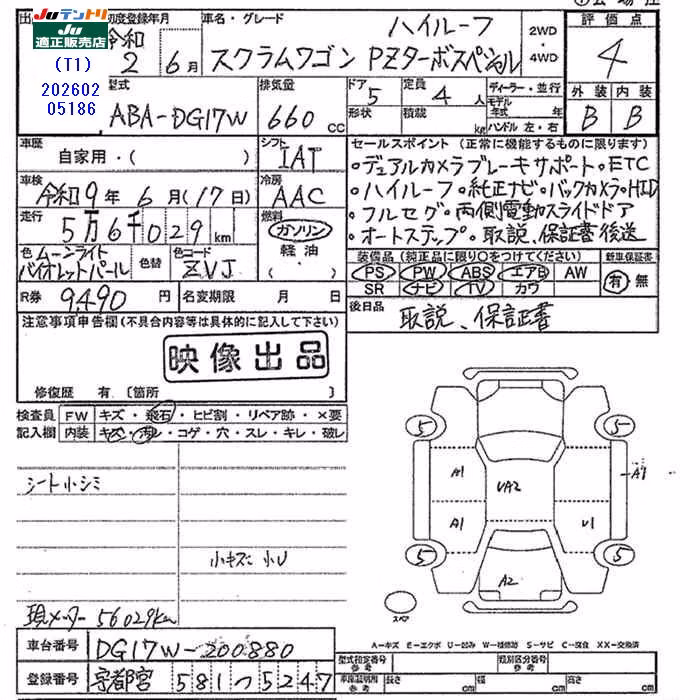 JUテントリ
JU
適正販売店
(T1)
202602
05186
初度登録年月
令和
2年 6月
車名・グレード
ハイルーフ
スクラムワゴン PZターボスペシャル
2WD
・
4WD
評価点
4
型式
ABA-DG17W
排気量
660 cc
ドア
5
定員
4人
形状
積載
kg
ディーラー・並行
モデル年式 年
ハンドル 左・右
外装 内装
B B
車歴
自家用・( )
シフト
IAT
車検
令和9年6月(17日)
冷房
AAC
走行
5万6千029km
燃料
ガソリン
軽油
( )
色 ムーンライトバイオレットパール
色替
色コード
ZVJ
R券 9,490円
名変期限 月 日
セールスポイント (正常に機能するものに限ります)
・デュアルカメラブレーキサポート・ETC
・ハイルーフ・純正ナビ・バックカメラ・HID
・フルセグ・両側電動スライドドア
・オートステップ・取説、保証書後送
装備品(純正品に限り○をつけてください)
新車保証書
PS PW ABS エアB AW
SR ナビ TV カワ
有・無
後日品
取説、保証書
注意事項申告欄(不具合内容等は具体的に記入して下さい)
映像出品
修復歴 有〔箇所 〕
検査員 FW キズ・飛石・ヒビ割・リペア跡・×要
記入欄 内装 キズ・汚レ・コゲ・穴・スレ・キレ・破レ
シート小シミ
小キズ、小U
現メーター 56029km
5 5
A1 UA2 A1
A1 U1
5 5
A2
スペア
A-キズ E-エクボ U-凹み W-補修跡 S-サビ C-腐食 XX-交換済
車台番号 DG17W-200880
登録番号 宇都宮 581つ5247
型式指定番号
参考
類別区分番号
参考
車庫証明用
参考
長さ cm 幅 cm 高さ cm